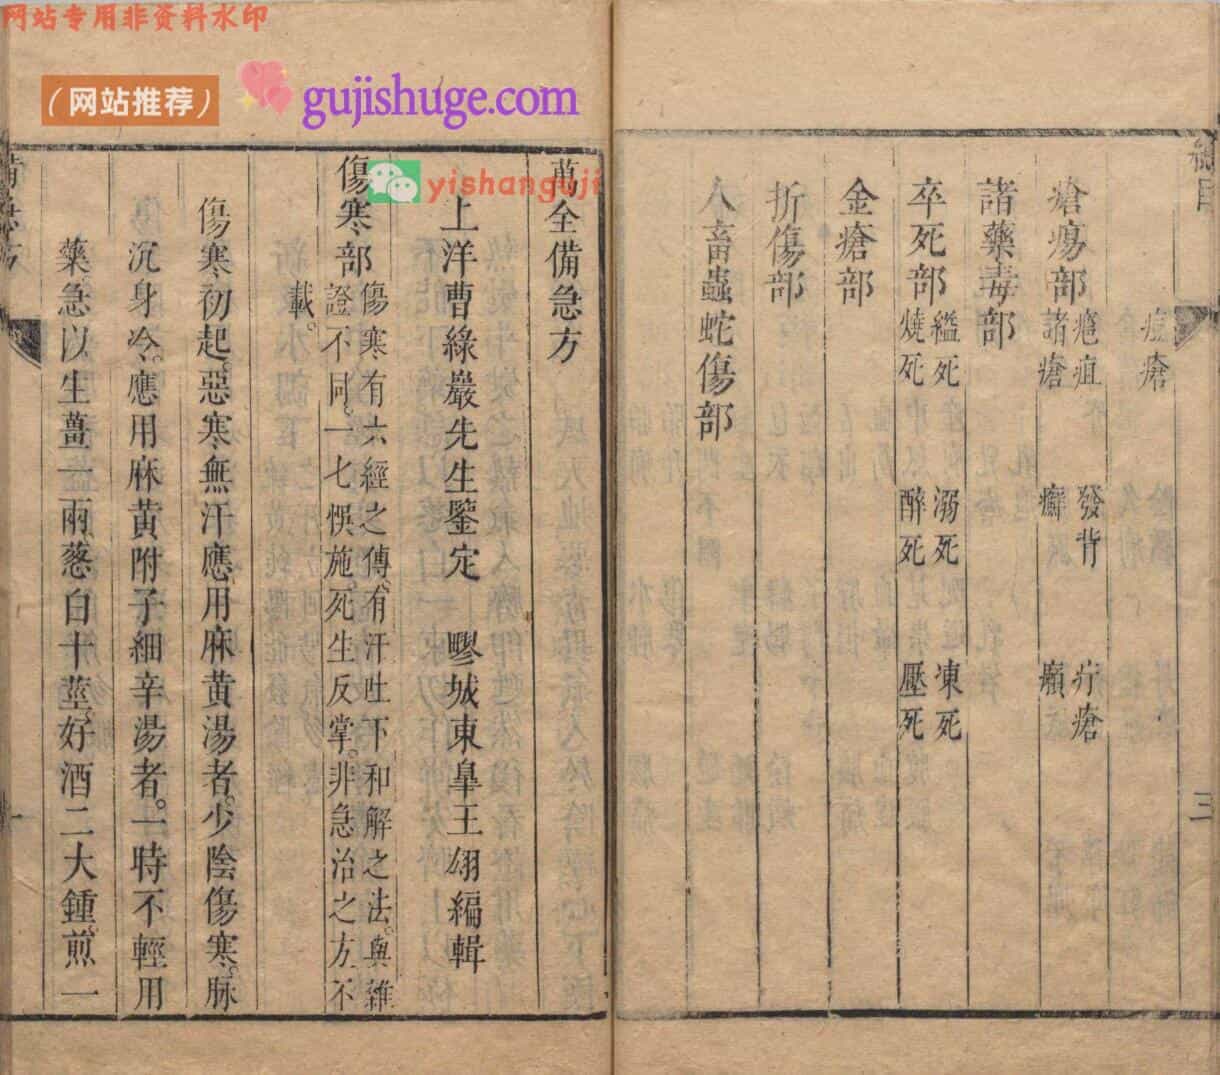 网站专用非资料水印
（网站推荐）
gujishuge.com
yishanguji
總目
三
瘟瘡
瘡瘍部 疤疽 發背 疔瘡
諸瘡 癬 癩
諸藥毒部
卒死部 縊死 溺死 凍死
燒死 醉死 壓死
金瘡部
折傷部
人畜蟲蛇傷部
萬全備急方
上洋曹綠巖先生鑒定 疁城東臯王翃編輯
傷寒部 傷寒有六經之傳。有汗吐下和解之法。與雜
證不同。一七悞施。死生反掌。非急治之方不
載。
傷寒初起。惡寒無汗應用麻黄湯者。少陰傷寒。脉
沉身冷。應用麻黄附子細辛湯者。一時不輕用
藥急以生薑一兩葱白十莖。好酒二大鍾。煎一
備急方
一